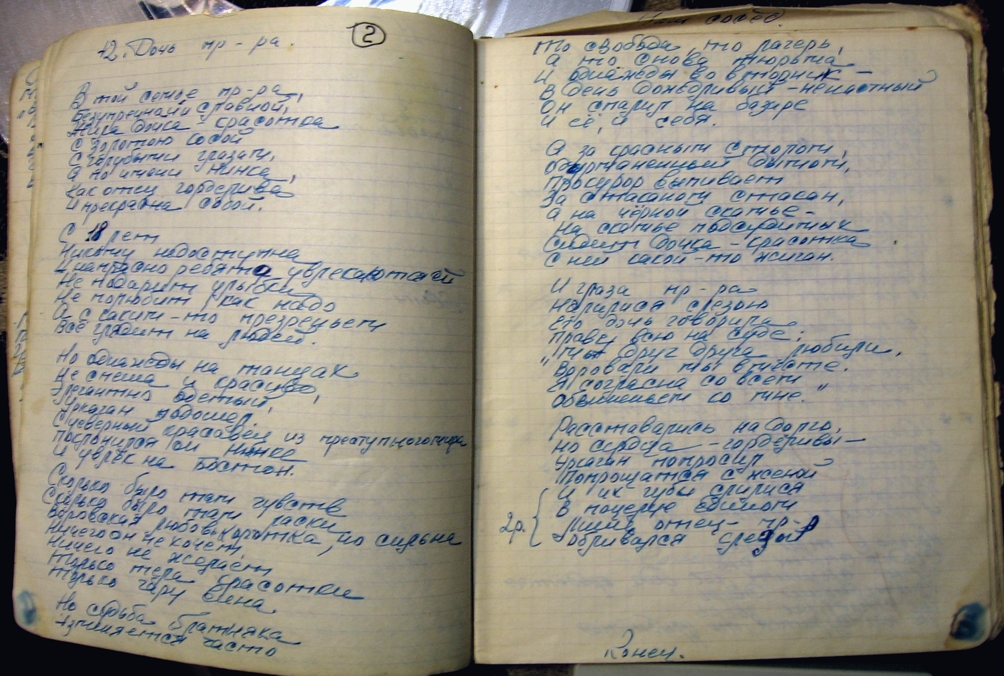 42. Дочь пр-ра.
2
В той семье пр-ра,
Безупречной и славной,
Жила дочка-красотка
С золотою косой
С голубыми глазами,
А по имени Нинка,
Как отец горделива
И прекрасна собой.
С 18 лет
Никому недоступна
И напрасно ребята увлекаются ей
Не подарит улыбки
Не полюбит как надо
И с каким-то презреньем
Всё глядит на людей.
Но однажды на танцах
Не спеша и красиво,
Элегантно одетый,
Уркаган подошел,
Суеверный красавец из преступного мира
Поклонился он Нинке
И увлек на бостон.
Сколько было там чувств
Сколько было там ласки
Воровская любовь коротка, но сильна
Ничего он не хочет,
Ничего не желает
Только тела красотки
Только чару вина
Но судьба блатняка
Изменяется часто
То свобода, то лагерь,
А то снова тюрьма
И однажды во вторник —
В день дождливый-ненастный
Он спалил на базаре
И её, и себя.
А за красным столом,
Одурманенный дымом,
Прокурор выпивает
За стаканом стакан,
А на чёрной скамье -
На скамье подсудимых
Сидит дочка-красотка
С ней какой-то жиган.
И глаза пр-ра
Налилися слезою
Его дочь говорила
Правду всю на суде:
"Мы друг друга любили,
Воровали мы вместе.
Я согласна со всем
Обвиненьем ко мне."
Расставались на долго,
Но сердца-горделивы-
Уркаган попросил
Попрощатся с женой
2р.
И их губы слилися
В поцелуе едином
Лишь отец-пр-р
Обливался слезой
Конец.